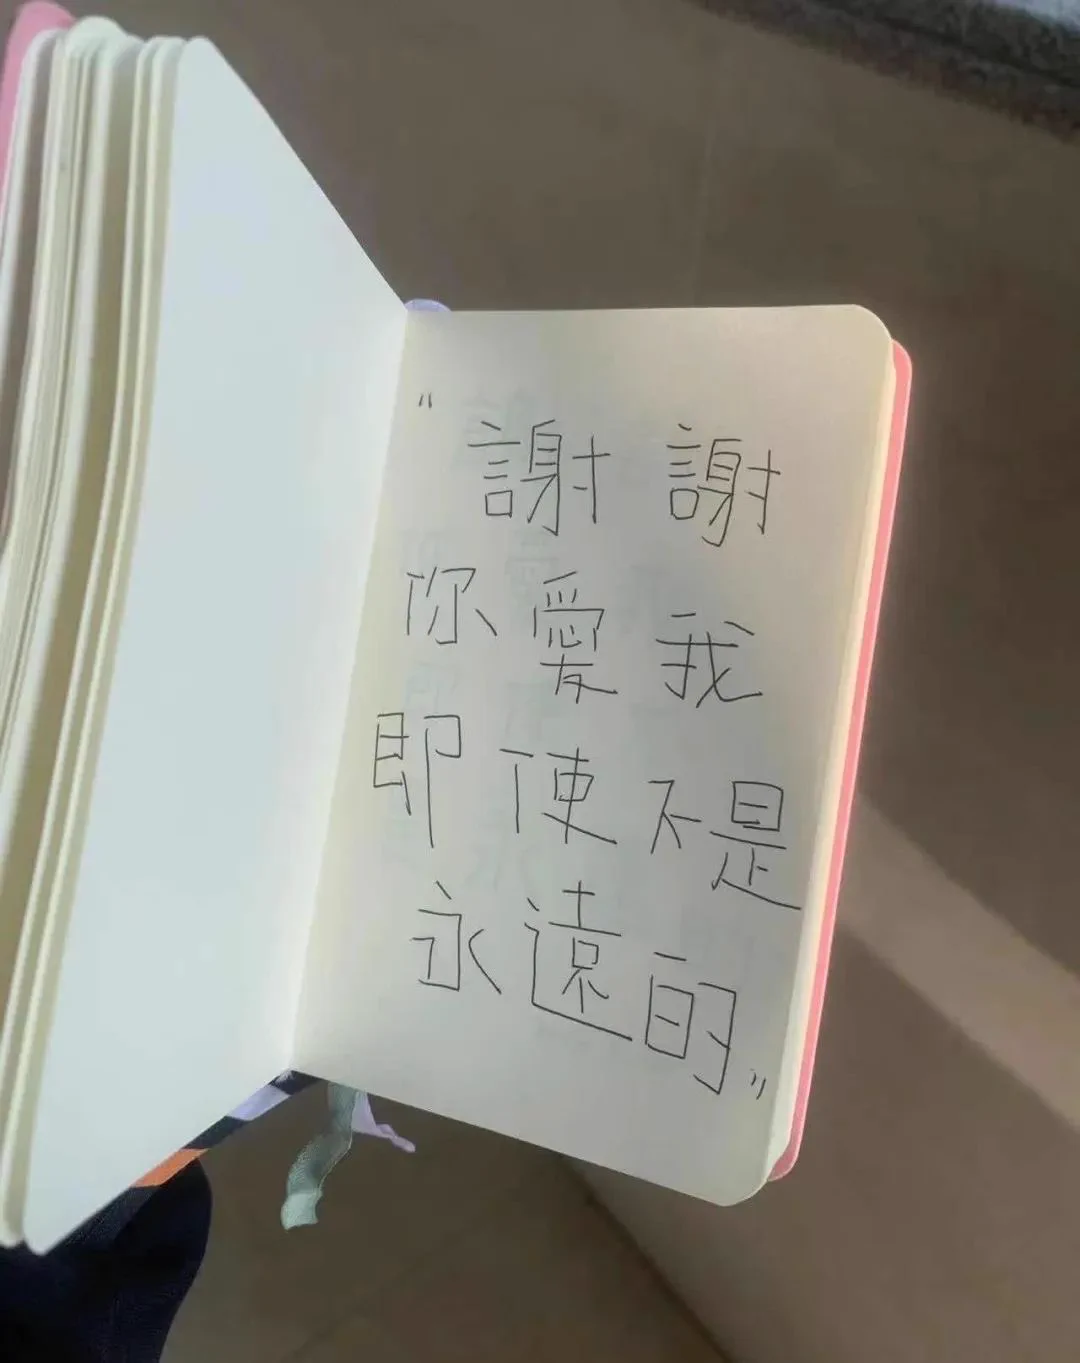 “謝謝
你愛我
即使不是
永遠的”